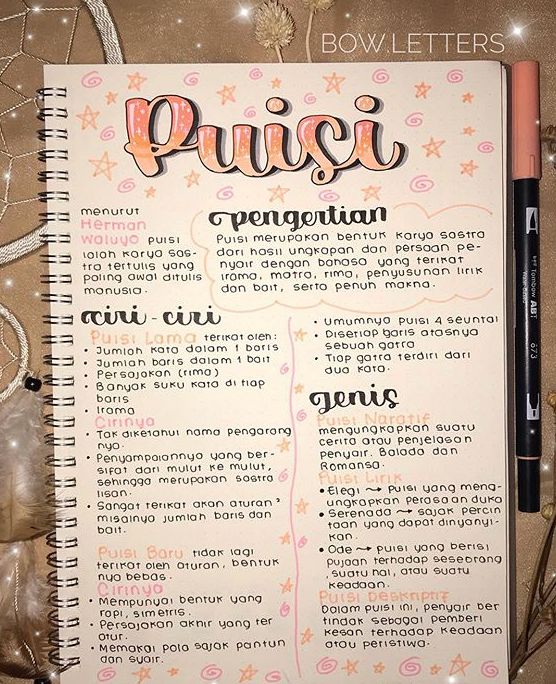 BOW.LETTERS
Puisi
menurut
Herman
Waluyo puisi
ialah karya sas-
tra tertulis yang
paling awal ditulis
manusia.
pengertian
Puisi merupakan bentuk karya sastra
dari hasil ungkapan dan persaan pe-
nyair dengan bahasa yang terikat
irama, matra, rima, penyusunan lirik
dan bait, serta penuh makna.
ciri-ciri
Puisi Lama terikat oleh:
• Jumlah kata dalam 1 baris
• Jumlah baris dalam 1 bait
• Persajakan (rima)
• Banyak suku kata di tiap
baris
• Irama
Cirinya
• Tak diketahui nama pengarang
nya.
• Penyampaiannya yang ber-
sifat dari mulut ke mulut,
sehingga merupakan sastra
lisan.
• Sangat terikat akan aturan²
misalnya jumlah baris dan
bait.
Puisi Baru tidak lagi
terikat oleh aturan, bentuk
nya bebas.
Cirinya
• Mempunyai bentuk yang
rapi, simetris.
• Persajakan akhir yang ter
atur.
• Memakai pola sajak pantun
dan syair.
• Umumnya puisi 4 seuntai
• Disetiap baris atasnya
sebuah gatra
• Tiap gatra terdiri dari
dua kata.
Jenis
Puisi Naratif
mengungkapkan suatu
cerita atau penjelasan
penyair. Balada dan
Romansa.
Puisi Lirik
• Elegi → Puisi yang meng-
ungkapkan perasaan duka
• Serenada → sajak percin
taan yang dapat dinyanyi-
kan.
• Ode → puisi yang berisi
pujaan terhadap seseorang
, suatu hal, atau suatu
keadaan.
Puisi Deskriptif
Dalam puisi ini, penyair ber
tindak sebagai pemberi
kesan terhadap keadaan
atau peristiwa.
Tombow ABT
673